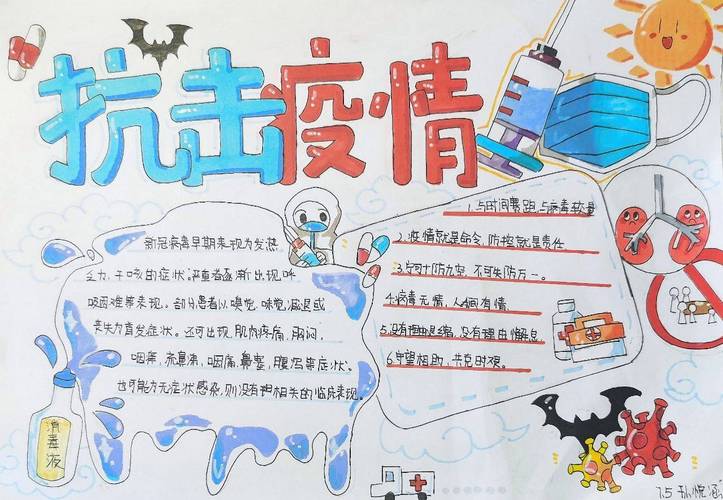 抗击疫情
新冠病毒早期表现为发热、
乏力、干咳的症状,严重者逐渐出现呼
吸困难等表现。部分患者以嗅觉、味觉减退或
丧失为首发症状。还可出现,肌肉疼痛,胸闷,
咽干、流鼻涕,咽痛,鼻塞,腹泻等症状。
也可能为无症状感染,则没有相关的临床表现。
1.与时间赛跑,与病毒较量
2.疫情就是命令,防控就是责任
3.宁可十防九空,不可失防万一。
4.病毒无情,人间有情。
5.没有理由退缩,没有理由懈怠
6.守望相助,共克时艰。
消毒液
7.5 孙悦